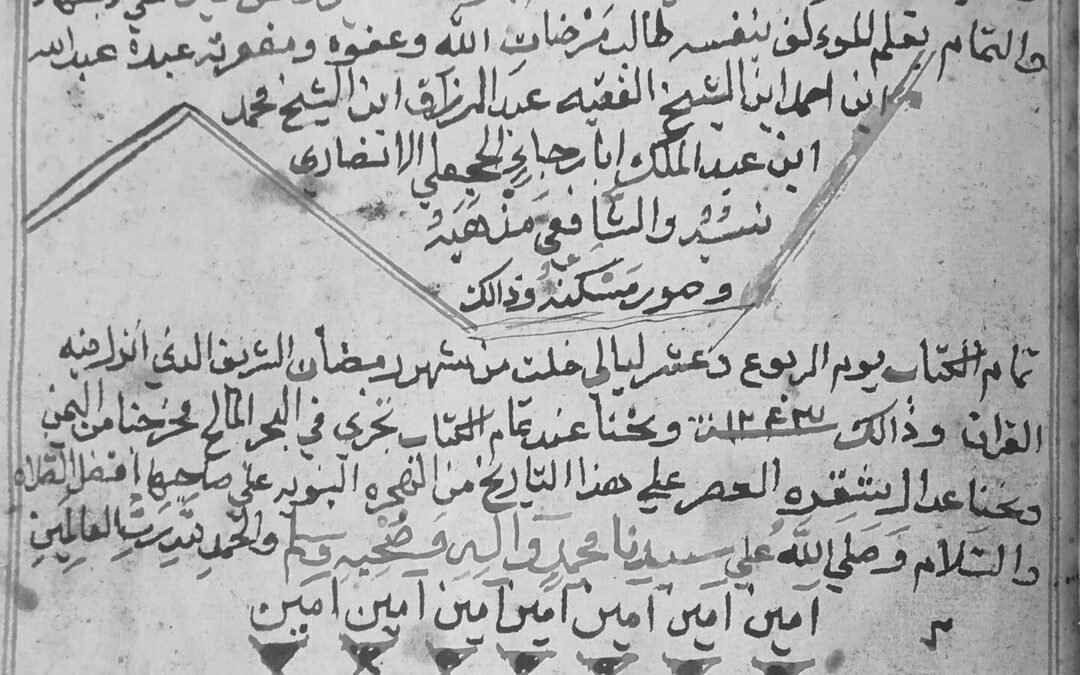 والتمام بقلم المولف لنفسه طالب مرضات الله وعفوه ومغفرته عبده عبدالله
ابن احمد ابن الشيخ الفقيه عبد الرزاق ابن الشيخ محمد
ابن عبد الملك الانصاري
والشافعي مذهبه
وصور مسكنه وذالك
تمام الكتاب يوم الربوع عشر ليالي خلت من شهر رمضان الشريف الذي انزل فيه
القران وذالك سنة ونحنا عند تمام الكتاب نجري في البحر المالح مخرجنا من اليمن
ونحنا العصر علي هذا التاريخ من الهجره النبويه علي صاحبها افضل الصلاه
والسلام وصلي الله علي سيدنا محمد واله وصحبه وسلم والحمد لله رب العالمين
امين امين امين امين امين امين امين